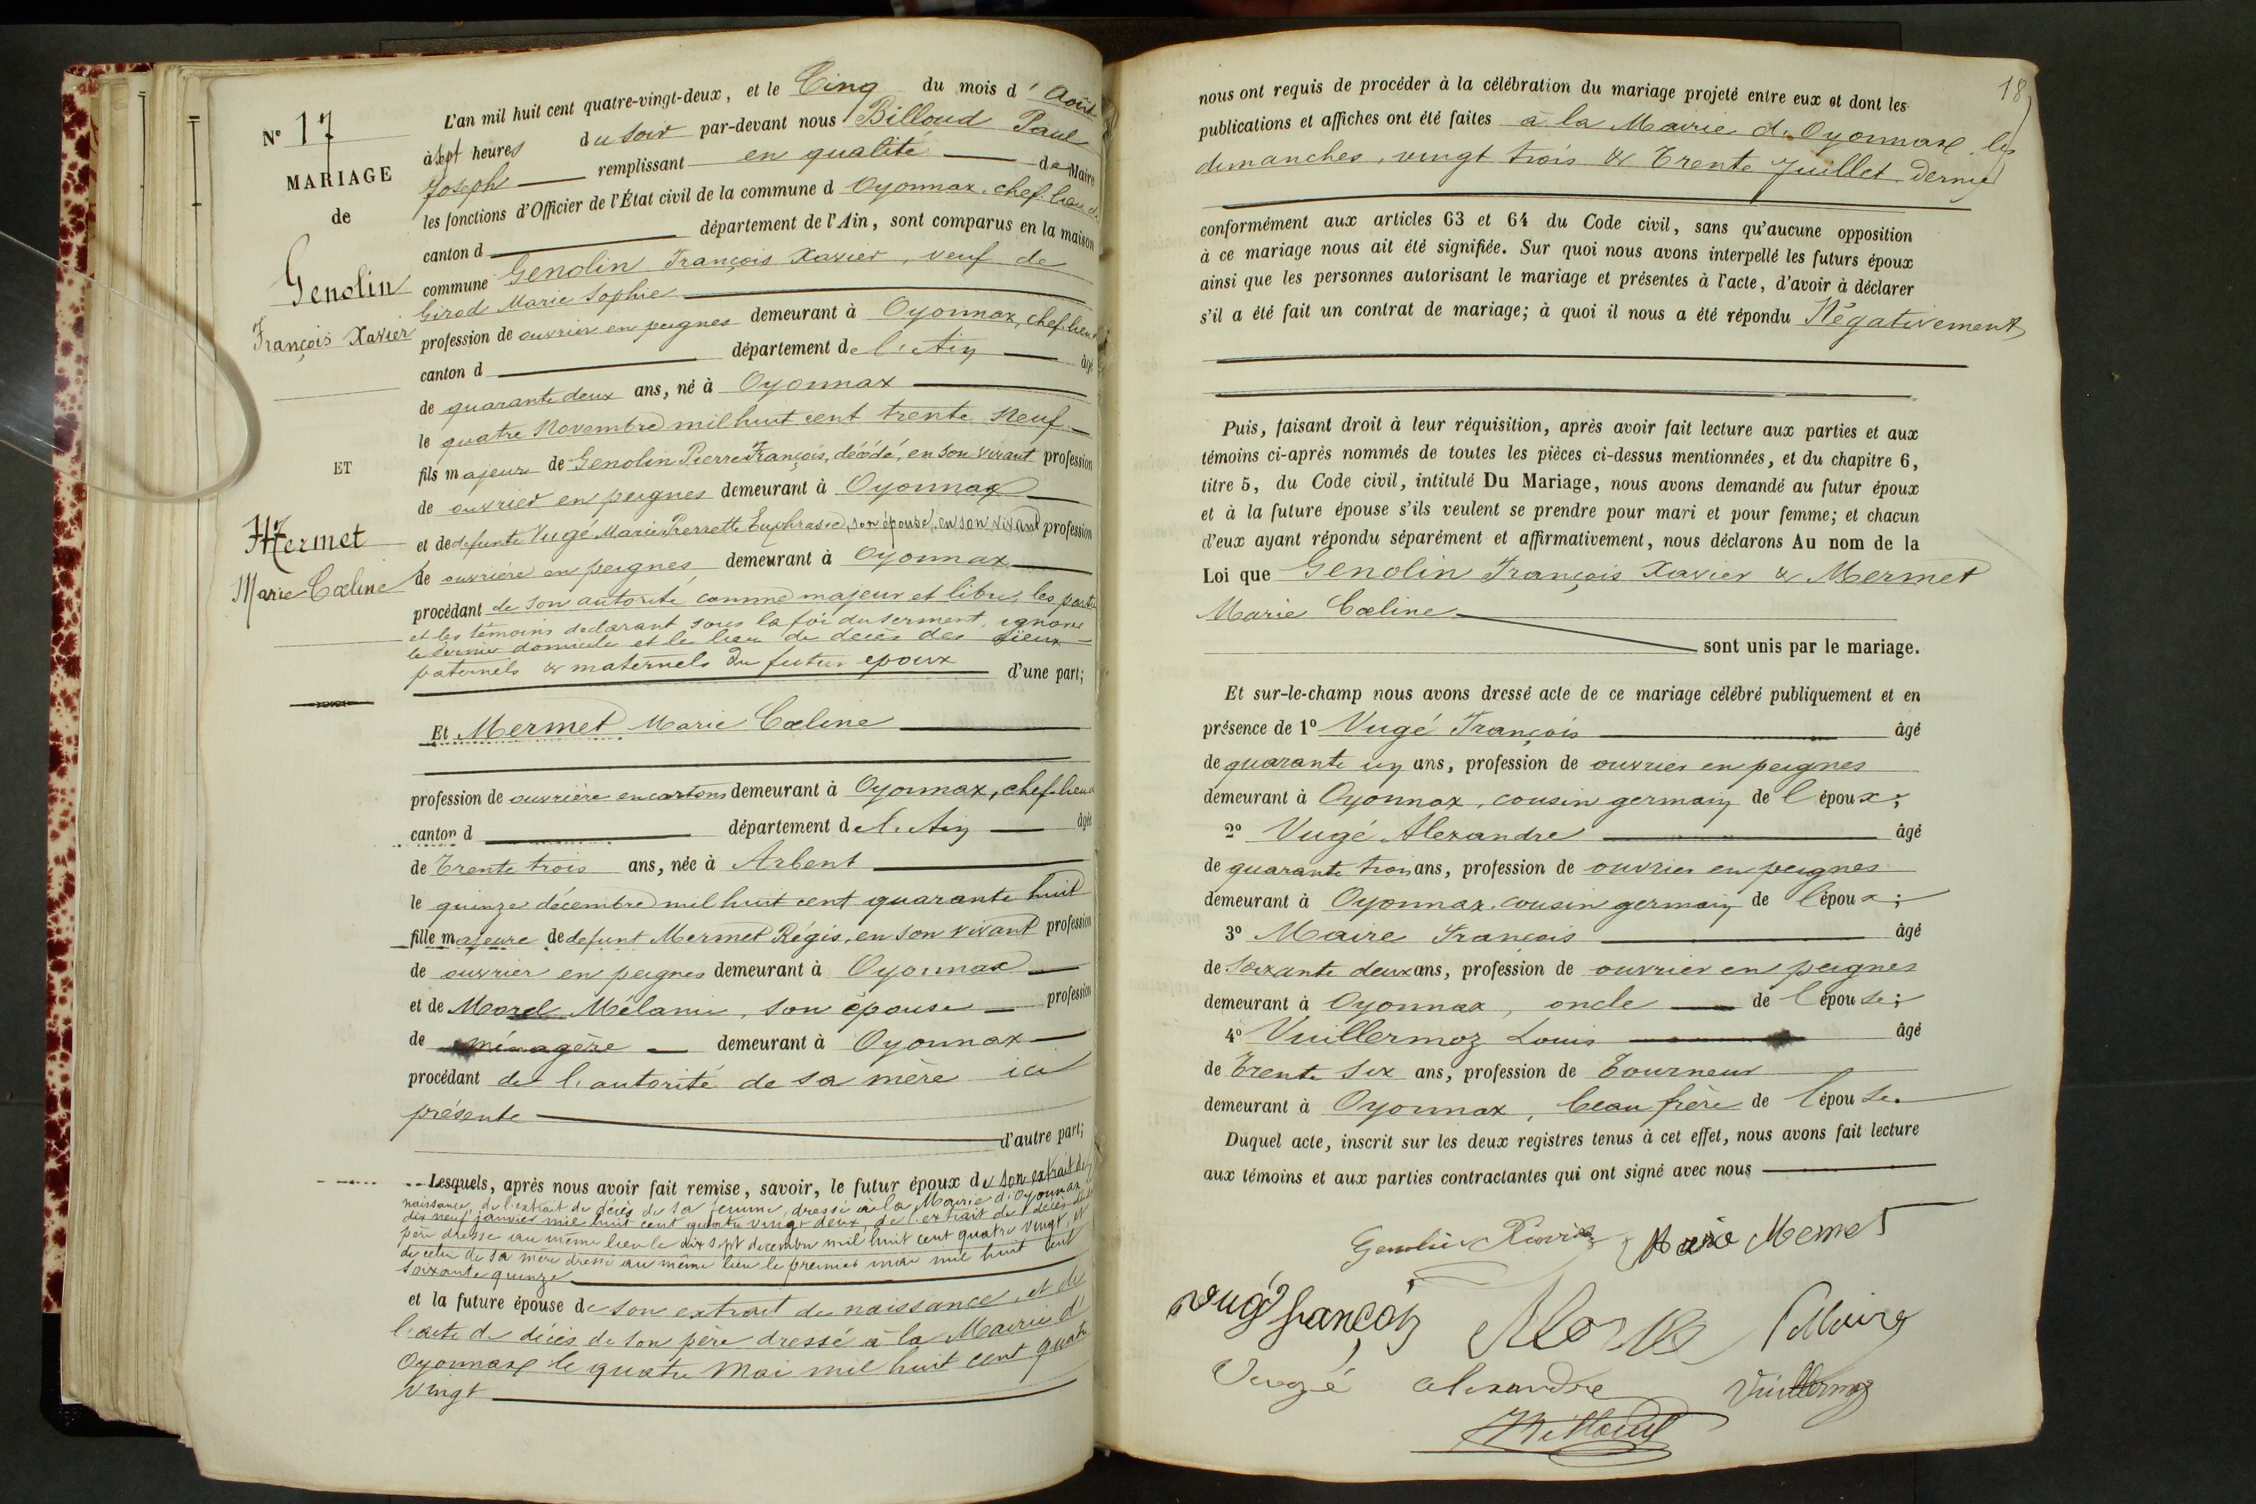 N° 17
MARIAGE
de
Genolin
François Xavier
ET
Mermet
Marie Cœline
L'an mil huit cent quatre-vingt-deux, et le Cinq du mois d'Août
à sept heures du soir par-devant nous Billoud Paul
Joseph remplissant en qualité de Maire
les fonctions d'Officier de l'État civil de la commune d Oyonnax, chef-lieu de
canton d département de l'Ain, sont comparus en la maison
commune Genolin François Xavier, veuf de
Girod Marie Sophie
profession de ouvrier en peignes demeurant à Oyonnax, chef-lieu
canton d département de l'Ain âgé
de quarante deux ans, né à Oyonnax
le quatre Novembre mil huit cent trente neuf
fils majeur de Genolin Pierre François, décédé, en son vivant profession
de ouvrier en peignes demeurant à Oyonnax
et de defunte Vugé Marie Pierrette Euphrasie, son épouse, en son vivant profession
de ouvrière en peignes demeurant à Oyonnax
procédant de son autorité comme majeur et libre, les parties
et les témoins declarant sous la foi du serment, ignorer
le dernier domicile et le lieu de décès des aïeux
paternels & maternels du futur époux d'une part;
Et Mermet Marie Cœline
profession de ouvrière en cartons demeurant à Oyonnax, chef-lieu
canton d département de l'Ain âgée
de Trente trois ans, née à Arbent
le quinze décembre mil huit cent quarante huit
fille majeure de defunt Mermet Régis, en son vivant profession
de ouvrier en peignes demeurant à Oyonnax
et de Morel Mélanie, son épouse profession
de ménagère demeurant à Oyonnax
procédant de l'autorité de sa mère ici
présente
d'autre part;
Lesquels, après nous avoir fait remise, savoir, le futur époux de son extrait de
naissance, de l'extrait de décès de sa femme, dressé à la Mairie d'Oyonnax le
dix neuf janvier mil huit cent quatre vingt deux, de l'extrait de décès de son
père dressé au même lieu le dix sept decembre mil huit cent quatre vingt, et
de celui de sa mère dressé au même lieu le premier mai mil huit cent
soixante quinze
et la future épouse de son extrait de naissance, et de
l'acte de décès de son père dressé à la Mairie d'
Oyonnax le quatre Mai mil huit cent quatre
vingt
18
nous ont requis de procéder à la célébration du mariage projeté entre eux et dont les
publications et affiches ont été faites à la Mairie d'Oyonnax les
dimanches, vingt trois & Trente Juillet dernier
conformément aux articles 63 et 64 du Code civil, sans qu'aucune opposition
à ce mariage nous ait été signifiée. Sur quoi nous avons interpellé les futurs époux
ainsi que les personnes autorisant le mariage et présentes à l'acte, d'avoir à déclarer
s'il a été fait un contrat de mariage; à quoi il nous a été répondu Négativement
Puis, faisant droit à leur réquisition, après avoir fait lecture aux parties et aux
témoins ci-après nommés de toutes les pièces ci-dessus mentionnées, et du chapitre 6,
titre 5, du Code civil, intitulé Du Mariage, nous avons demandé au futur époux
et à la future épouse s'ils veulent se prendre pour mari et pour femme; et chacun
d'eux ayant répondu séparément et affirmativement, nous déclarons Au nom de la
Loi que Genolin François Xavier & Mermet
Marie Cœline
sont unis par le mariage.
Et sur-le-champ nous avons dressé acte de ce mariage célébré publiquement et en
présence de 1° Vugé François âgé
de quarante un ans, profession de ouvrier en peignes
demeurant à Oyonnax, cousin germain de l'époux;
2° Vugé Alexandre âgé
de quarante trois ans, profession de ouvrier en peignes
demeurant à Oyonnax, cousin germain de l'époux;
3° Maire François âgé
de soixante deux ans, profession de ouvrier en peignes
demeurant à Oyonnax, oncle de l'épouse;
4° Vuillermoz Louis âgé
de Trente six ans, profession de Tourneur
demeurant à Oyonnax, beau frère de l'épouse.
Duquel acte, inscrit sur les deux registres tenus à cet effet, nous avons fait lecture
aux témoins et aux parties contractantes qui ont signé avec nous
Genolin Xavier Marie Mermet
Vugé françois Maire
Vugé alexandre Vuillermoz
Billoud